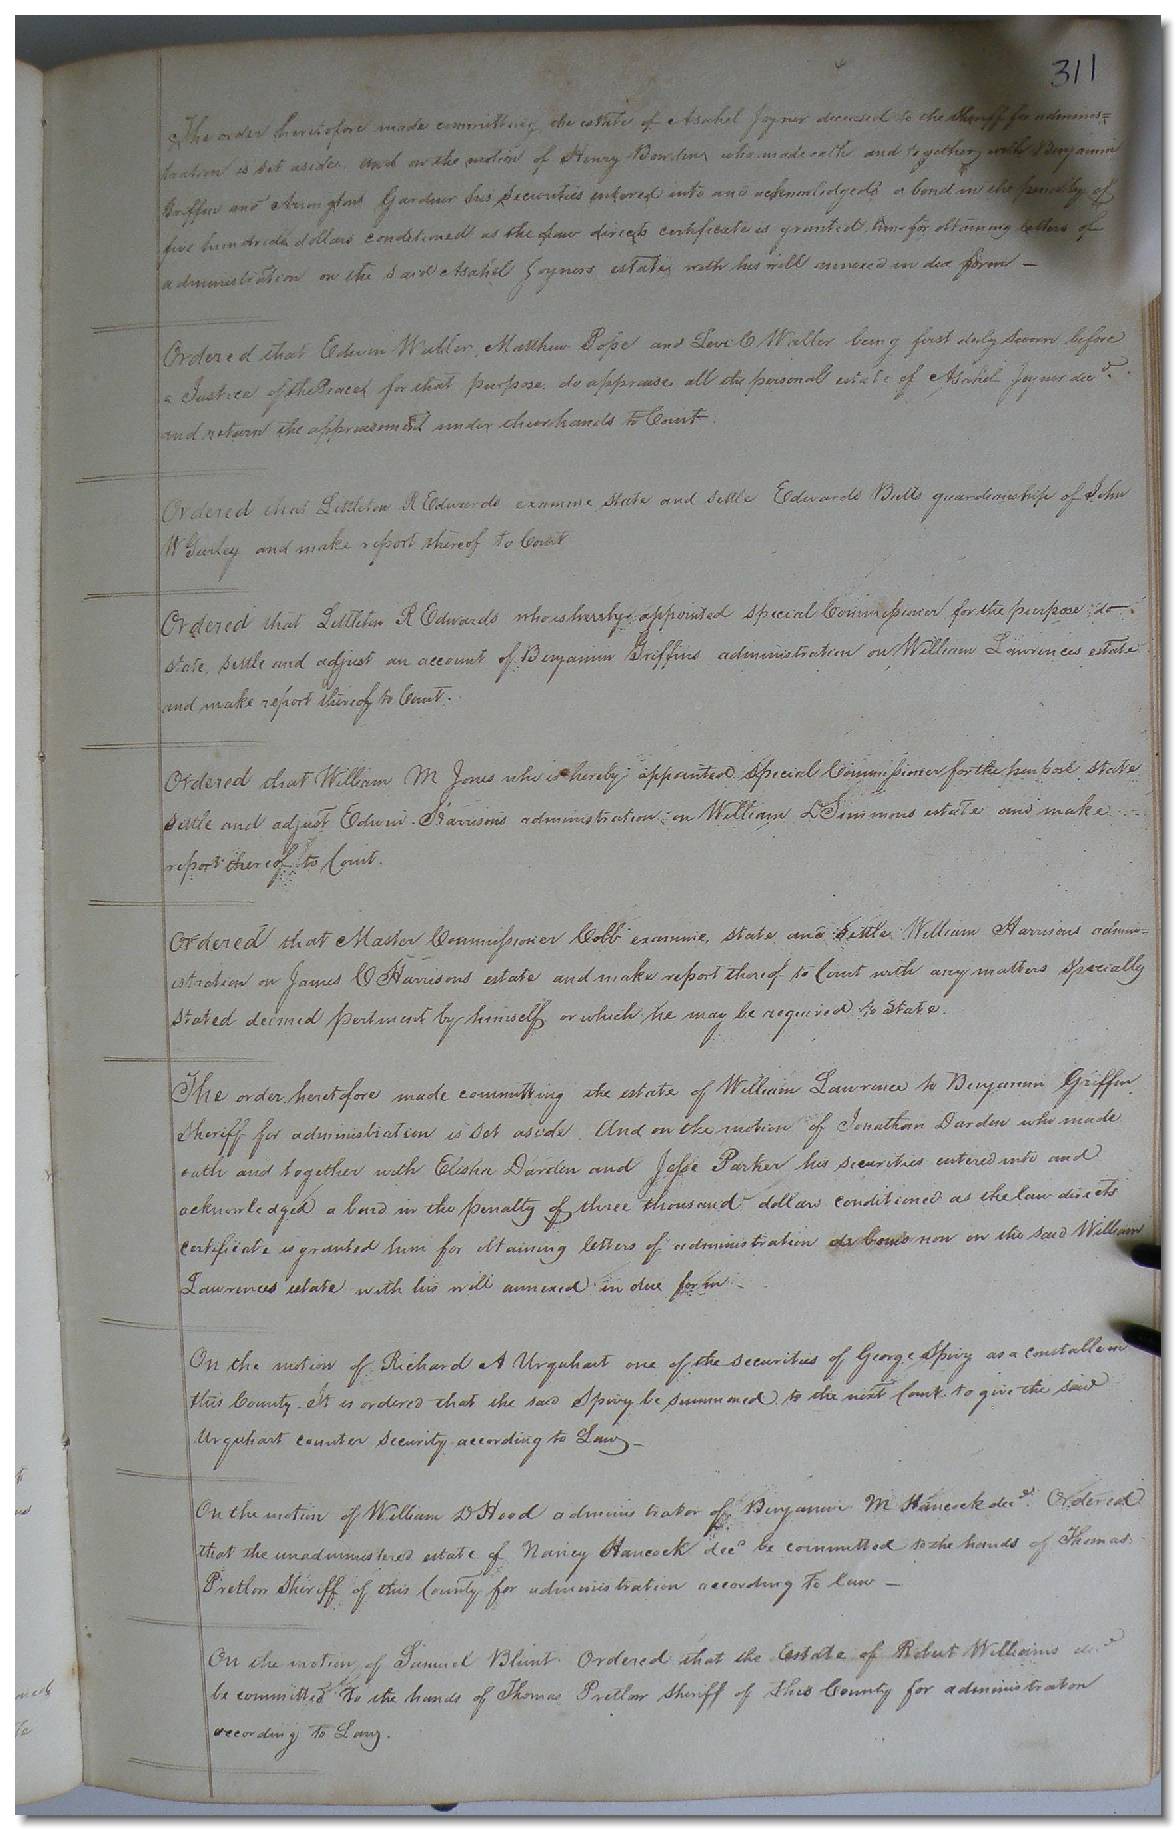 311
The order heretofore made committing the estate of Asahel Joyner deceased to the sheriff for adminis=
tration is set aside. And on the motion of Henry Bowden who made oath and together with Benjamin
Griffin and Arrington Gardner his securities entered into and acknowledged a bond in the penalty of
five hundred dollars conditioned as the law directs certificate is granted him for obtaining letters of
administration on the said Asahel Joyners estate with his will annexed in due form —
Ordered that Edwin Waller, Matthew Pope and Levi C Waller being first duly sworn before
a Justice of the Peace for that purpose do appraise all the personal estate of Asahel Joyner decd.
and return the appraisement under their hands to Court.
Ordered that Littleton R Edwards examine, state and settle Edwards Butts guardianship of John
W Gurley and make report thereof to Court
Ordered that Littleton R Edwards who is hereby appointed special Commissioner for the purpose do
state, settle and adjust an account of Benjamin Griffins administration on William Lawrences estate
and make report thereof to Court.
Ordered that William M Jones who is hereby appointed special Commissioner for the purpose state
settle and adjust Edwin Harrisons administration on William D Simmons estate and make
report thereof to Court.
Ordered that Master Commissioner Cobb examine, state and settle William Harrisons admin=
istration on James C Harrisons estate and make report thereof to Court with any matters specially
stated deemed pertinent by himself or which he may be required to state.
The order heretofore made committing the estate of William Lawrence to Benjamin Griffin
sheriff for administration is set aside. And on the motion of Jonathan Darden who made
oath and together with Elisha Darden and Jesse Parker his securities entered into and
acknowledged a bond in the penalty of three thousand dollars conditioned as the law directs
certificate is granted him for obtaining letters of administration de bonis non on the said William
Lawrences estate with his will annexed in due form —
On the motion of Richard A Urquhart one of the securities of George Spivy as a constable in
this County. It is ordered that the said Spivy be summoned to the next Court to give the said
Urquhart counter security according to Law —
On the motion of William D Hood administrator of Benjamin M Hancock decd. Ordered
that the unadministered estate of Nancy Hancock decd be committed to the hands of Thomas
Pretlow Sheriff of this County for administration according to law —
On the motion of Samuel Blunt Ordered that the Estate of Robert Williams decd
be committed to the hands of Thomas Pretlow sheriff of this County for administration
according to Law.